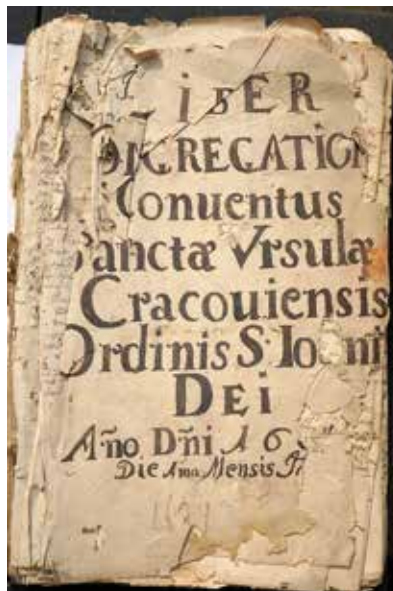 LiBER
ONGREGATiON
Conuentus
Sanctæ Vrsulæ
Cracouiensis
Ordinis S. Ioanni
DEi
Año Dñi 16
Die Mensis